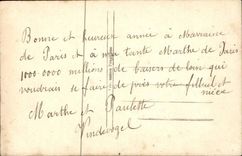 Bonne et heureuse année à Marraine
de Paris et à ma tante Marthe de Paris
1000 0000 millions de baisers de loin qui
voudrais se faire de près votre filleul et
nièce
Marthe et Paulette
Vindevogel